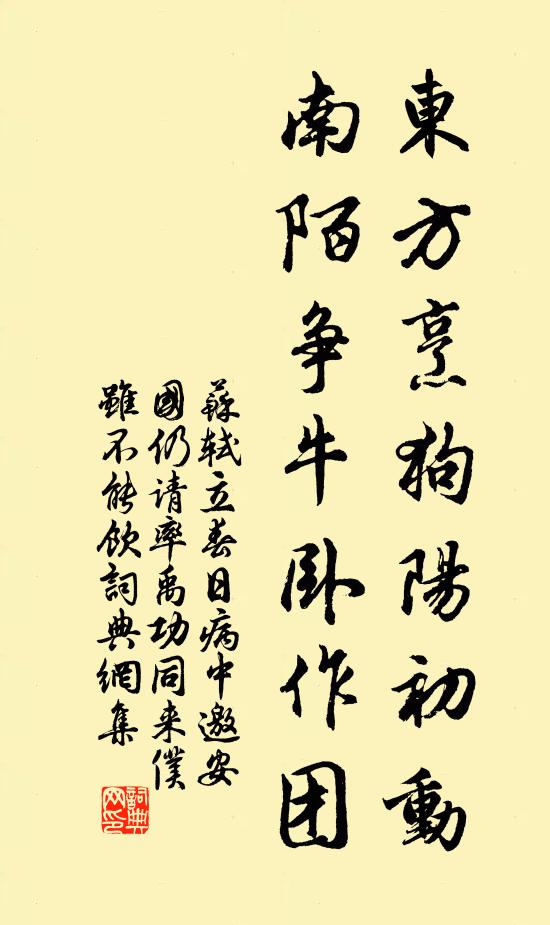 東方烹狗陽初動
南陌争牛卧作团
蘇軾立春日病中邀安
國仍请率禹功同来僕
雖不能飲詞典網集
詞典
网印